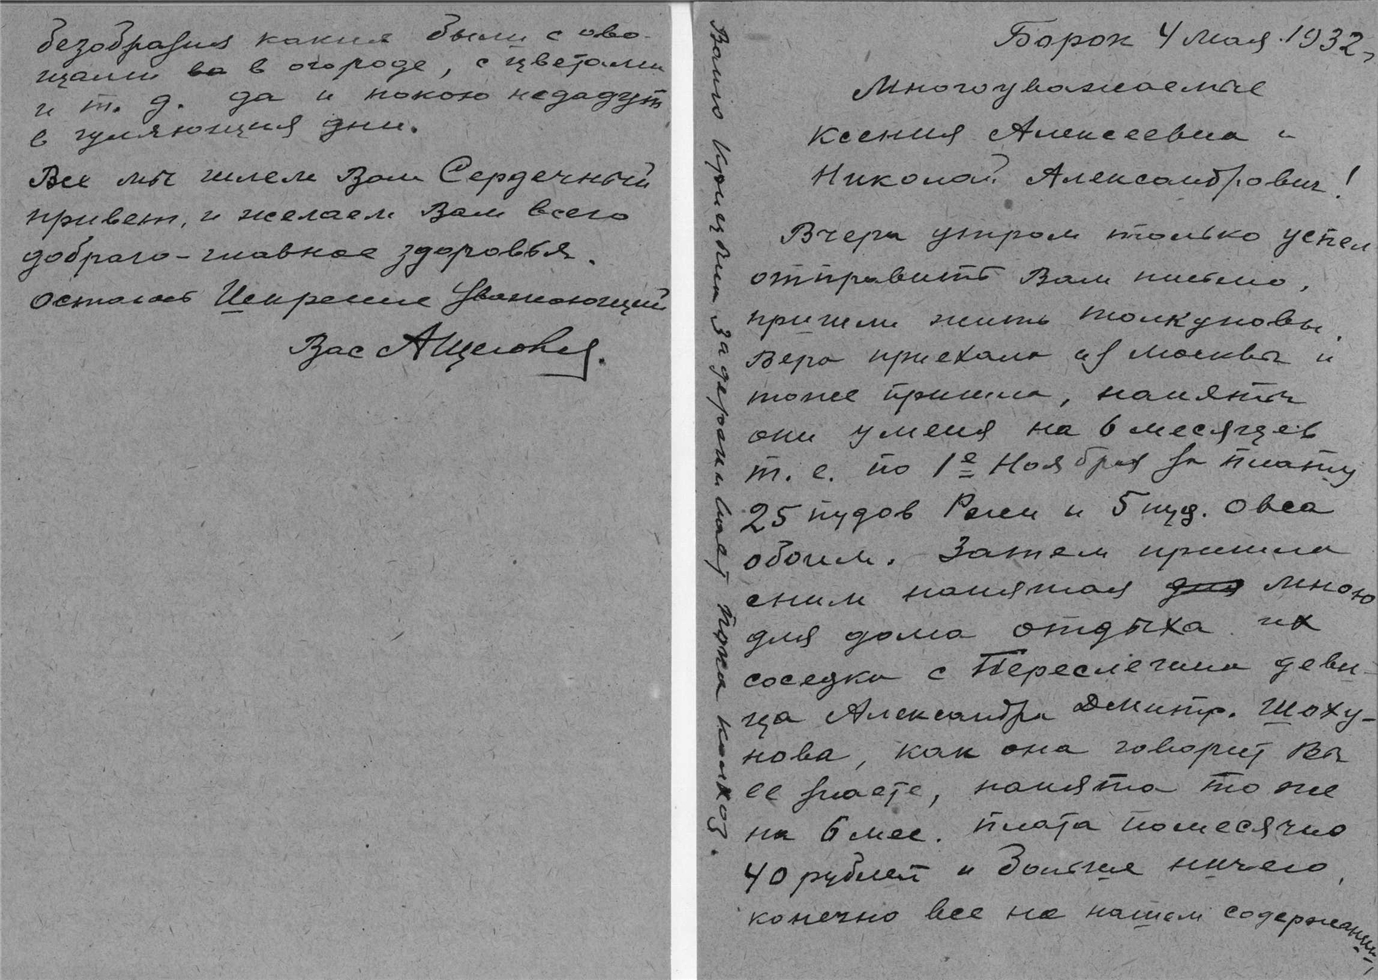 безобразия какия были с ово-
щами ва в огороде, с цветами
и т. д. да и покою недадут
в гуляющия дни.
Все мы шлем Вам Сердечный
привет, и желаем Вам всего
добраго – главное здоровья.
остаюсь Искренне Уважающий
Вас
Борок 4 мая 1932,
Многоуважаемые
Ксения Алексеевна и
Николай Александрович!
Вчера утром только успел
отправить Вам письмо,
пришли жить Толкуновы,
Вера приехала из Москвы и
тоже пришла, наняты
они у меня на 6 месяцев
т. е. по 1е Ноября за плату
25 пудов Ржи и 5 пуд. Овса
обоим. Затем пришла
сними нанятая для мною
для дома отдыха их
соседка с Переслегина деви-
ца Александра Дмитр. Шаху-
нова, как она говорит Вы
ее знаете, нанята то же
на 6 мес. плата помесячно
40 рублей и Больше ничего,
конечно все на нашем содержании,
Вашу задерживает пока колхоз.